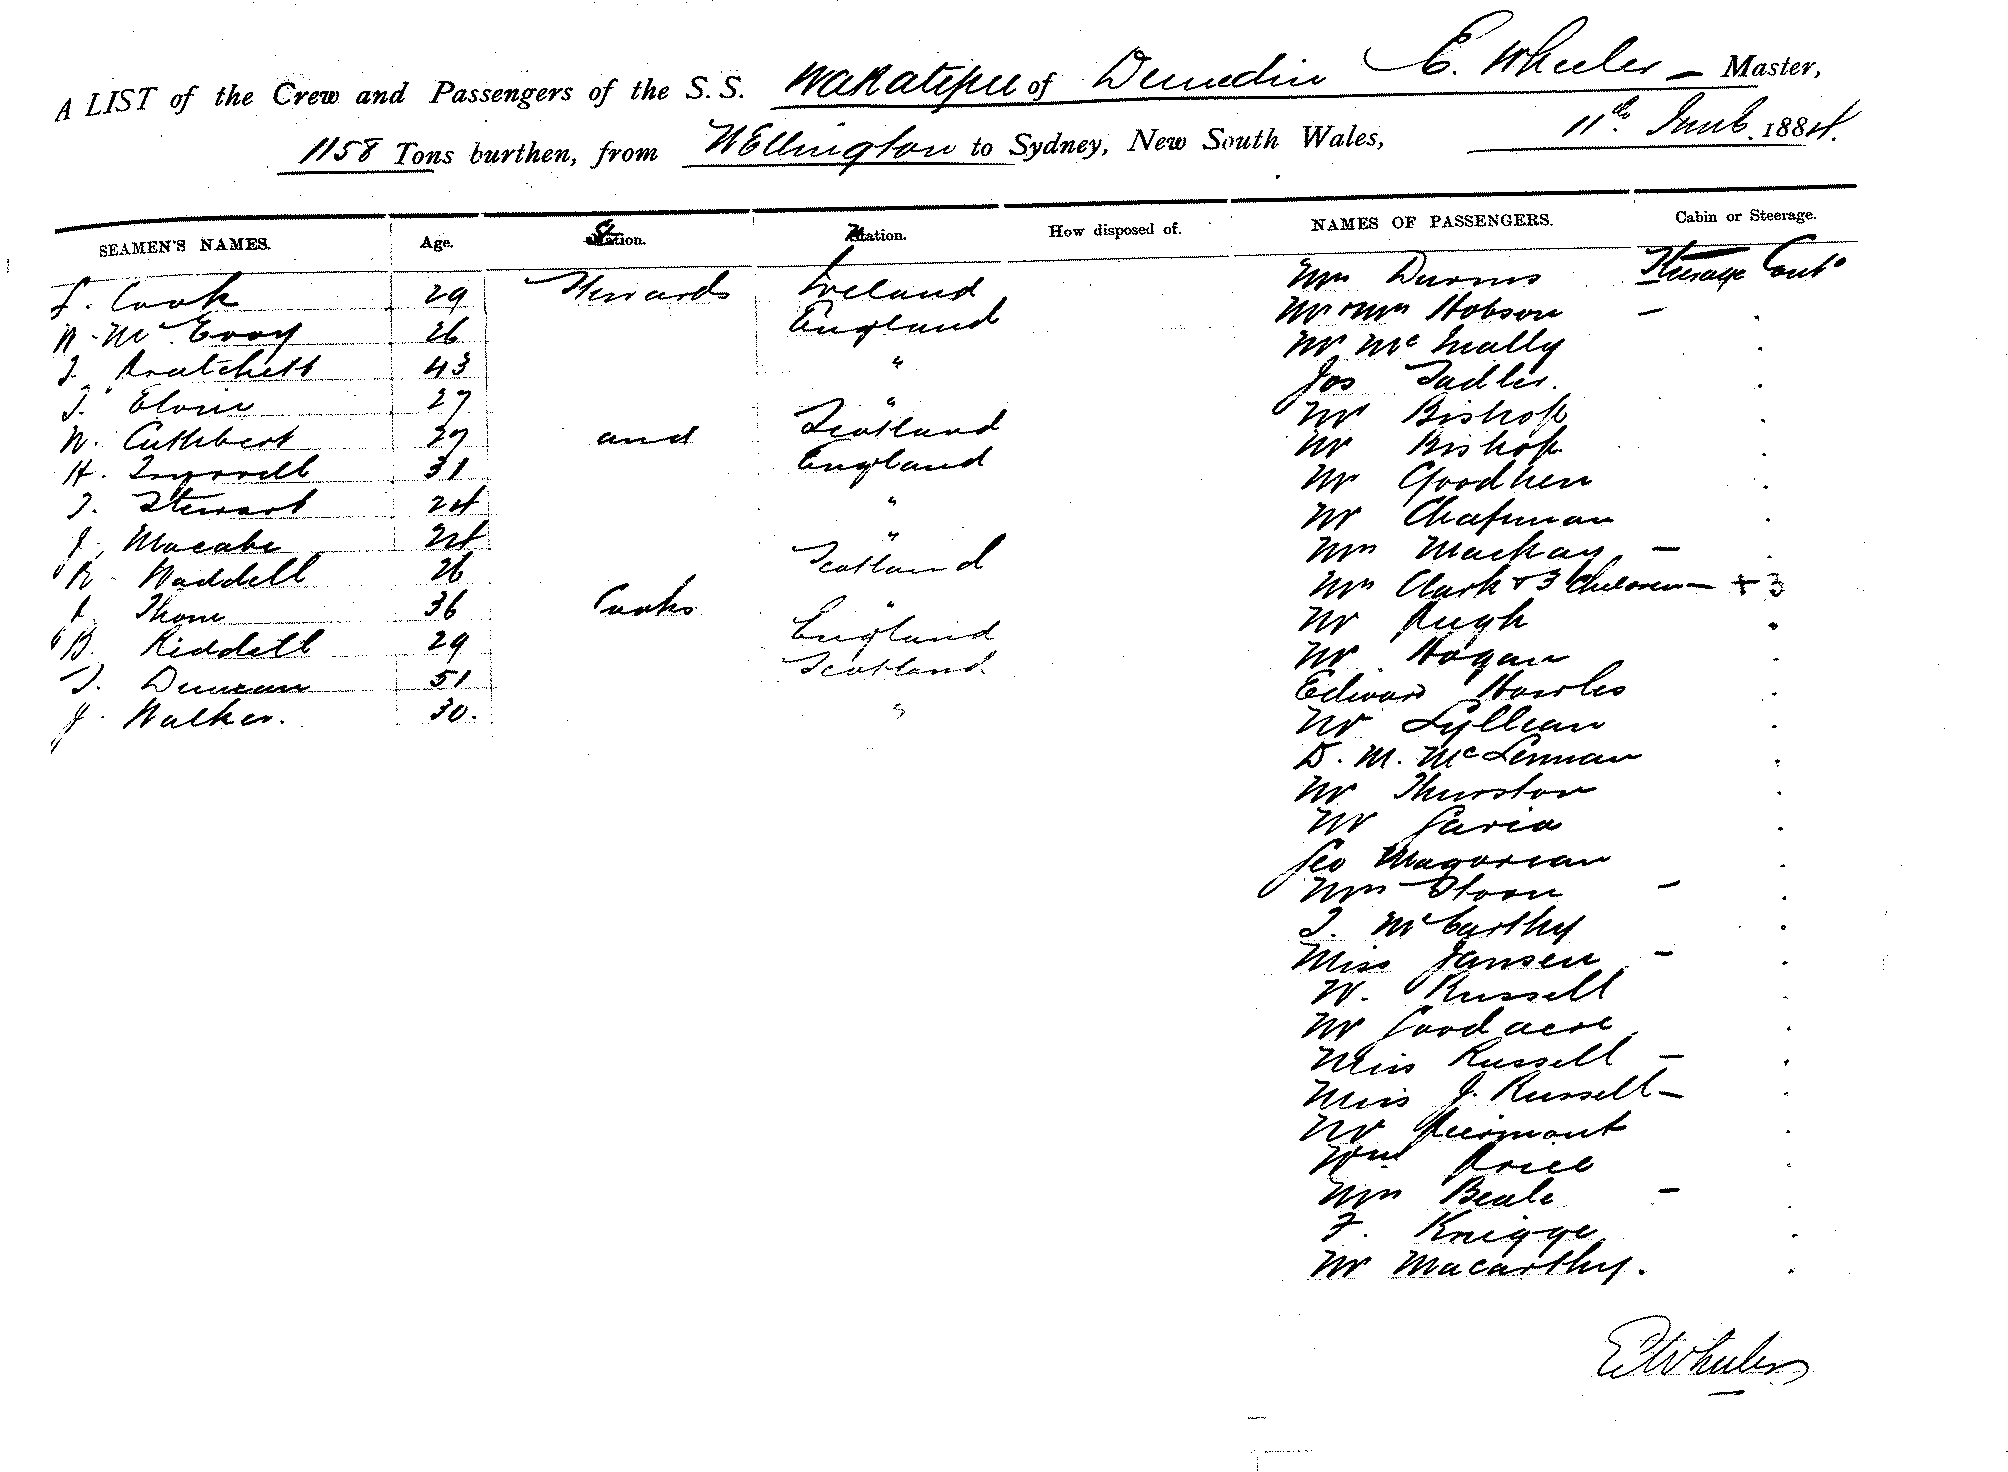 A LIST of the Crew and Passengers of the S.S. Wakatipu of Dunedin E. Wheeler – Master,
1158 Tons burthen, from Wellington to Sydney, New South Wales, 11th 1884.
SEAMEN'S NAMES. Age. Station. Nation. How disposed of. NAMES OF PASSENGERS. Cabin or Steerage.
Cook 29 Stewards Ireland
W. McEvoy 26 England
Pratchett 43 "
27 "
W. Cuthbert 27 and Scotland
H. 31 England
Stewart 24 "
J. Macabe 24 "
R. Waddell 26 Scotland
Thom 36 Cooks "
Riddell 29 England
Duncan 51 Scotland
J. Walker. 30. "
Mrs Steerage Cont.
Mr & Mrs Hobson –
Mr McInally
Jos Sadler.
Mr Bishop
Mr Bishop
Mr
Mr Chapman
Mrs Mackay –
Mrs Clark & 3 Children – + 3
Mr Pugh
Mr Hogan
Edward
Mr
D. M. McLennan
Mr Thurston
Mr
Geo Magorian
Mrs Sloan –
McCarthy
Miss Jansen –
W. Russell
Mr Goodacre
Miss Russell –
Miss J. Russell –
Mr Piermont
Wm Price
Mrs Beale –
F. Knigge
Mr Macarthy.
E Wheeler